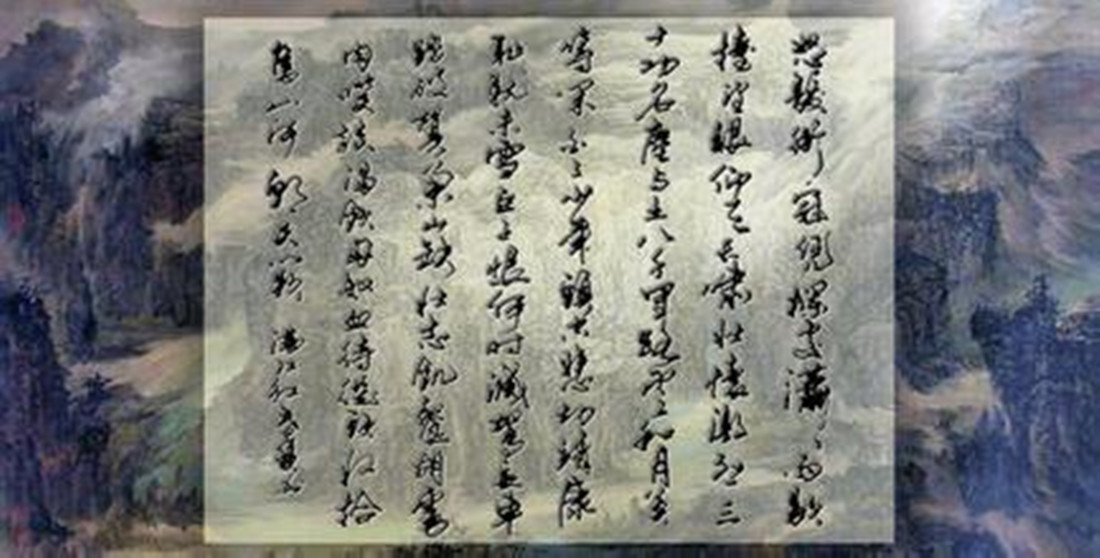 怒髮衝冠憑欄處瀟瀟雨歇
擡望眼仰天長嘯壯懷激烈三
十功名塵與土八千里路雲和月莫
等閒白了少年頭空悲切靖康
恥猶未雪臣子恨何時滅駕長車
踏破賀蘭山缺壯志飢餐胡虜
肉笑談渴飲匈奴血待從頭收拾
舊山河朝天闕 滿江紅